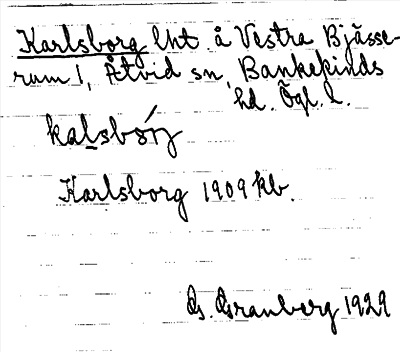 Karlsborg lht. å Västra Bjässe-
rum 1, Åtvid sn, Bankekinds
hd. Ögl. l.
kalsbórj
Karlsborg 1909 kb.
G. Granberg 1929